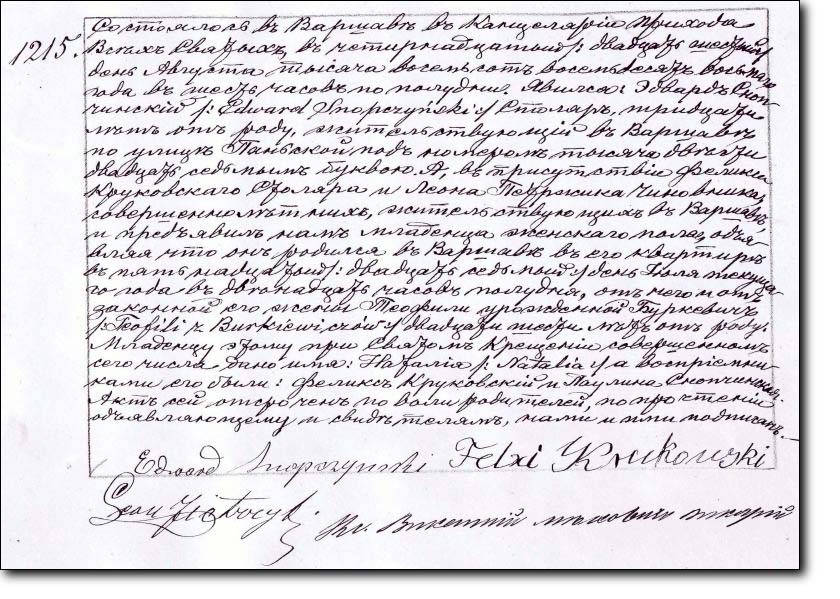 1215.
Состоялось въ Варшавѣ въ Канцеляріи прихода
Всѣхъ Святыхъ, въ четырнадцатый /: двадцать шестый /
день Августа тысяча восемьсотъ восемьдесятъ восьмаго
года въ шесть часовъ по полудни. Явился: Эдвардъ Снop-
чинскій /: Edward Snopczyński :/ Столяръ, тридцати
лѣтъ отъ роду, жительствующій въ Варшавѣ
по улицѣ Паньской подъ номеромъ тысяча двѣсти
двадцать седьмымъ буквою А, въ присутствіи Феликса
Круковскаго Столяра и Леона Чиновника,
совершеннолѣтнихъ, жительствующихъ въ Варшавѣ,
и предъявилъ намъ младенца женскаго пола, объя-
вляя что онъ родился въ Варшавѣ въ его квартирѣ
въ пятьнадцатый /: двадцать седьмой :/ день Іюля текуща-
го года въ двѣнадцать часовъ полудня, отъ него и отъ
законной его жены Теофили урожденной Буркевичъ
/: Teofili z Burkiewiczów :/ двадцати шести лѣтъ отъ роду.
Младенцу этому при Святомъ Крещеніи совершенномъ
сего числа дано имя: Наталія /: Natalia :/ а воспріемни-
ками его были: Феликсъ Круковскій и Паулина Снопчинская.
Актъ сей отсроченъ по воли родителей, по прочтеніи
объявляющему и свидѣтелямъ, нами и ими подписанъ.
Edward Snopczynski Felxi Krukowski
Leon
Кс. Викентій викарій